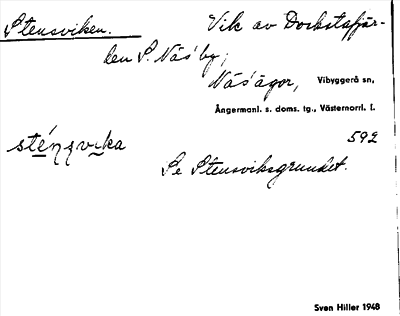 Stensviken. Vik av Dockstafjär-
den S. Näs by,
Näs ägor, Vibyggerå sn,
Ångermanl. s. doms. tg., Västernorrl. l.
sténsvika 592
Se Stensviksgrundet.
Sven Hiller 1948